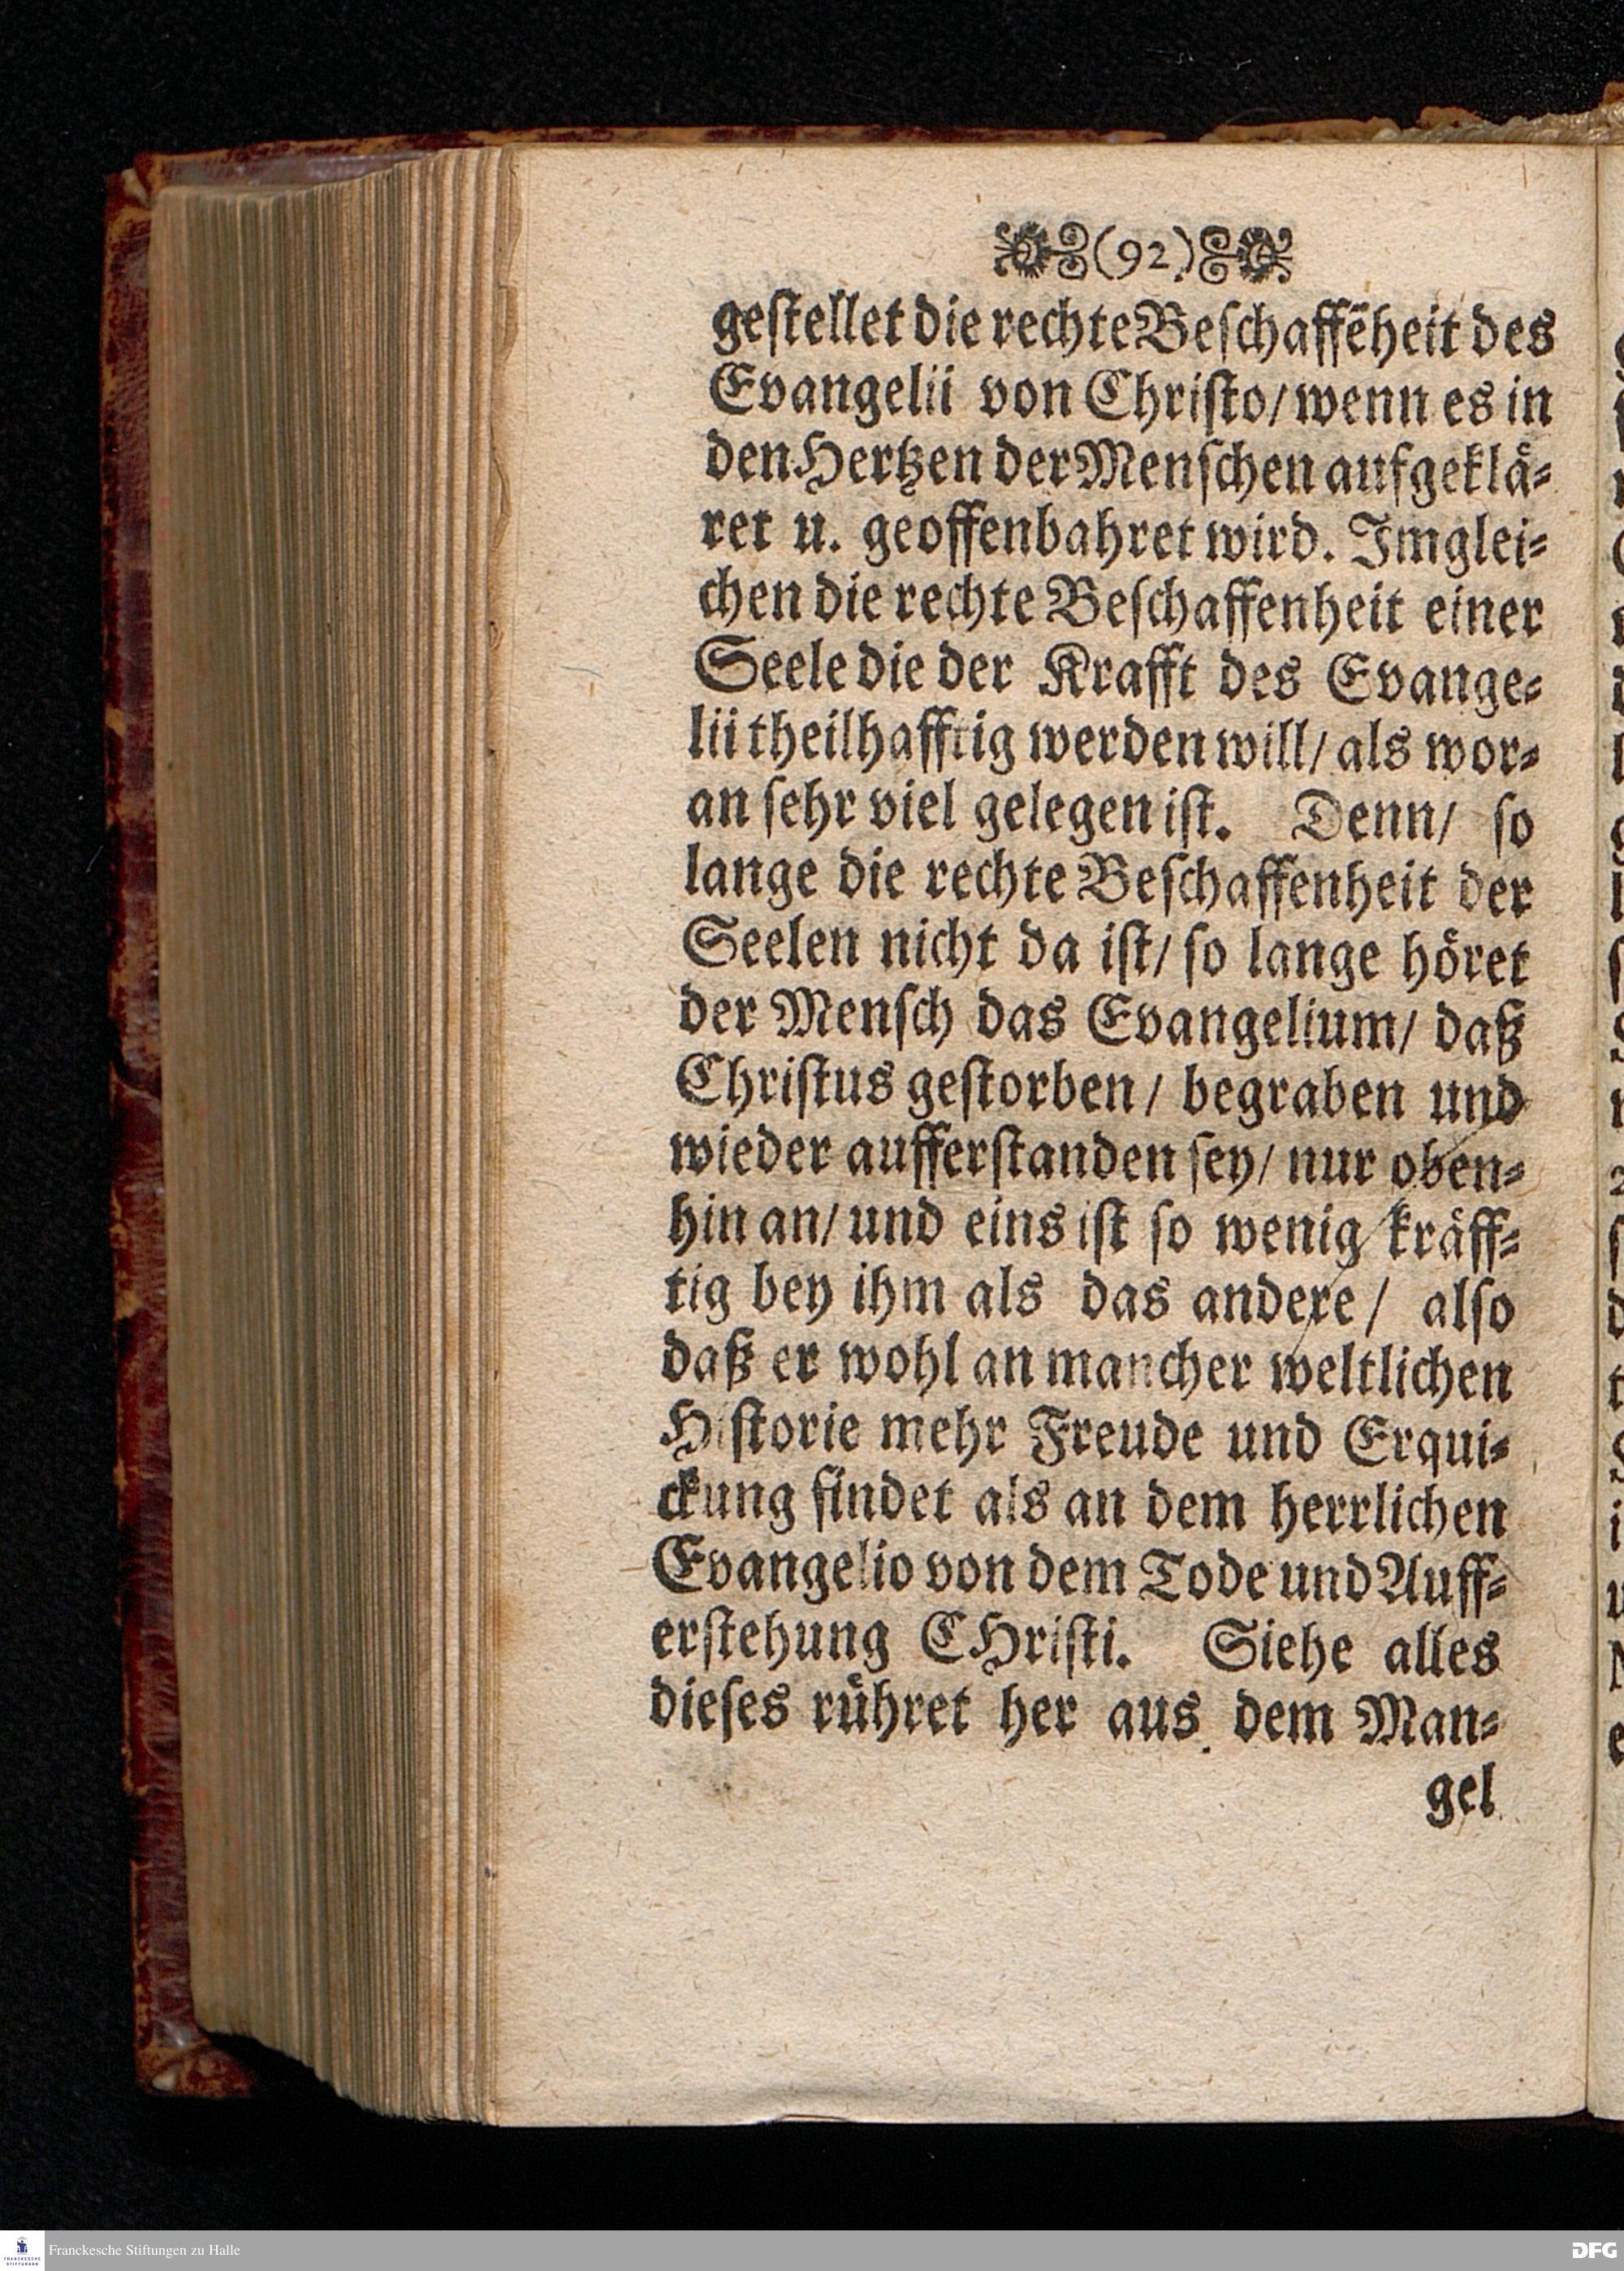 (92)
geſtellet die rechte Beſchaffēheit des
Evangelii von Chriſto/ wenn es in
den Hertzen der Menſchen aufgeklä-
ret u. geoffenbahret wird. Imglei-
chen die rechte Beſchaffenheit einer
Seele die der Krafft des Evange-
lii theilhafftig werden will/ als wor-
an ſehr viel gelegen iſt. Denn/ ſo
lange die rechte Beſchaffenheit der
Seelen nicht da iſt/ ſo lange höret
der Menſch das Evangelium/ daß
Chriſtus geſtorben/ begraben und
wieder aufferſtanden ſey/ nur oben-
hin an/ und eins iſt ſo wenig kräff-
tig bey ihm als das andere/ alſo
daß er wohl an mancher weltlichen
Hiſtorie mehr Freude und Erqui-
ckung findet als an dem herrlichen
Evangelio von dem Tode und Auff-
erſtehung CHriſti. Siehe alles
dieſes rühret her aus dem Man-
gel
Franckesche Stiftungen zu Halle
DFG